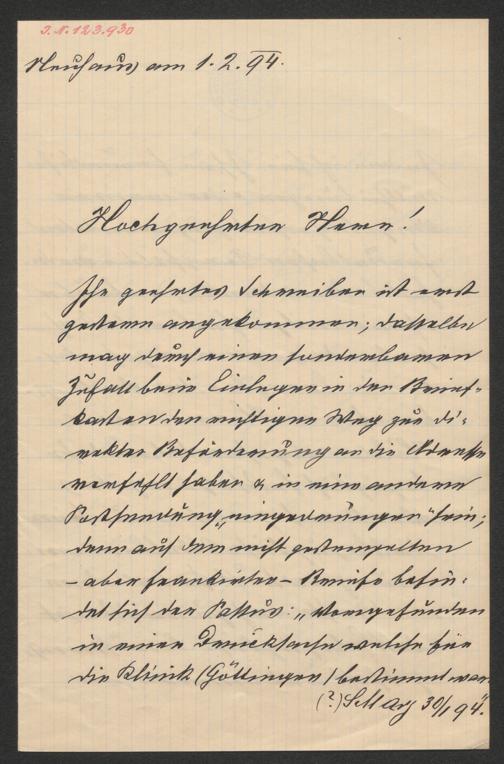 I.N. 123.930
Neuhaus am 1.2.94.
Hochgeehrter Herr!
Ihr geehrtes Schreiben ist erst
gestern angekommen; dasselbe
mag durch einen sonderbaren
Zufall beim Einlegen in den Brief-
kasten den richtigen Weg zur di-
rekten Beförderung an die Adresse
verfehlt haben & in eine andere
Postsendung „eingedrungen" sein;
denn auf dem nicht gestempelten
– aber frankirten – Briefe befin-
det sich der Passus: „Vorgefunden
in einer Drucksache welche für
die Klinik (Göttingen) bestimmt war."
(?) 30/1 94."